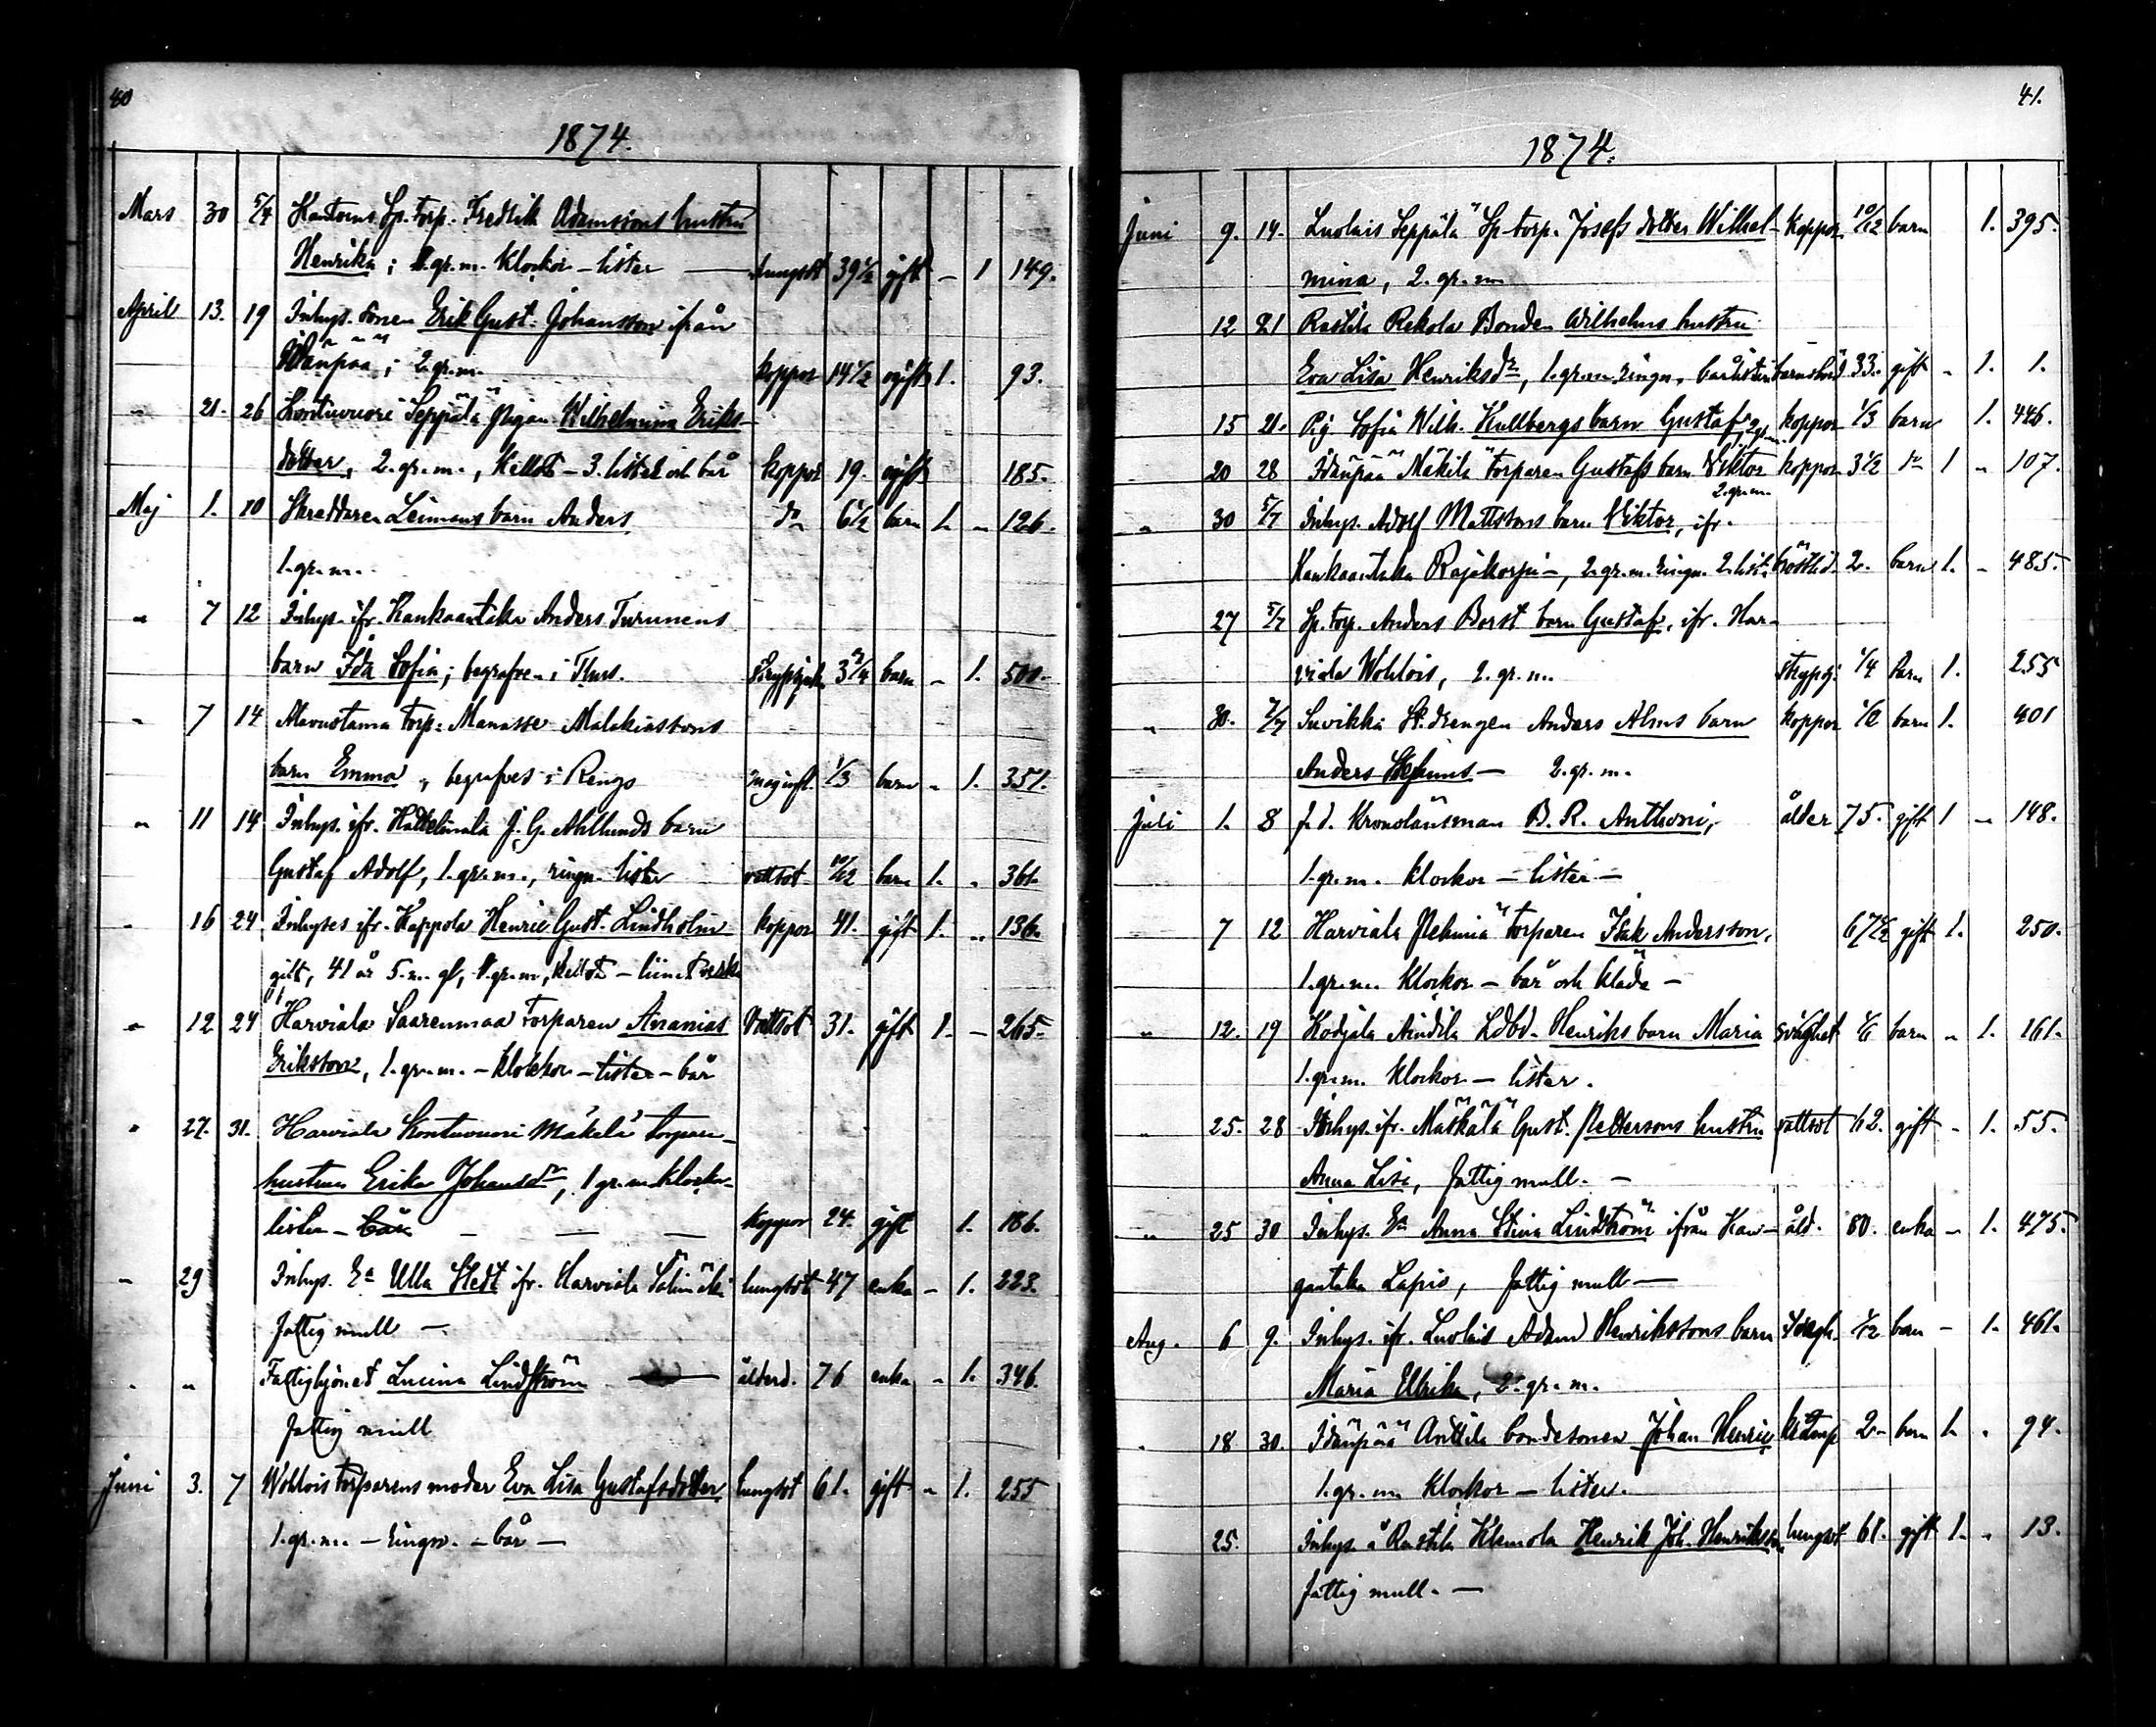 40
1874.
Mars 30 5/4 Kantorns Sp. torp. Fredrik Adamssons hustru
Henrika; 1.gr.m. Klockor – lister — lungsot 39 1/2 gift – 1 149.
April 13. 19 Inhys. sonen Erik Gust. Johansson ifrån
Idänpää; 2.gr.m. koppor 14 1/2 ogift 1. 93.
" 21. 26 Kontuvuori Seppälä pigan Wilhelmina Eriks-
dotter, 2.gr.m., – 3. lister och bår koppor 19. ogift 185.
Maj 1. 10 Skreddaren Leimans barn Anders do 6 1/2 barn 1. – 126.
1.gr.m.
" 7 12 Inhys. ifr. Kankaantaka Anders Turunens
barn Ida Sofia; begrafven i Thus. Strypsjuk 3 3/4 barn – 1. 501.
" 7 14 Alavustama torp. Manasse Malakiassons
barn Emma, begrafves i Rengo maginfl. 1/3 barn – 1. 351.
" 11 14 Inhys. ifr. Hattelmala J. G. Ahllunds barn
Gustaf Adolf, 1.gr.m., ringn. lister vattsot 10/12 barn 1. – 361.
" 16 24 Inhyses ifr. Kappola Henric Gust. Lindholm koppor 41. gift 1. – 136.
gift, 41 år 5.m. gl, 1.gr.m,
" 12 24 Harviala Saarenmaa Torparen Ananias Vattsot 31. gift 1. – 265.
Eriksson, 1.gr.m. – Klockor – lister – bår
" 27. 31. Harviala Kontuvuori Mäkelä torpare-
hustrun Erika Johansdr, 1 gr.m klockor-
lister – bår — koppor 24. gift 1. 186.
" 29 Inhys. Ea Ulla Stedt ifr. Harviala lungsot 47 enka – 1. 223.
Fattig mull –
" " Fattighjonet Lucina Lindström ålderd. 76 enka – 1. 346.
Fattig mull
Juni 3. 7 Wohlois torparens moder Eva Lisa Gustafsdotter lungsot 61. gift – 1. 255
1.gr.m. – Ringn. – bår –
41.
1874.
Juni 9. 14. Luolais Seppälä Sp torp. Josefs dotter Wilhel- koppor 10/12 barn 1. 395.
mina, 2.gr.m
12 21 Rastila Rekola Bonden Wilhelms hustru
Eva Lisa Henriksdr, 1.gr.m. ringn, bår lister barnsbörd 33. gift – 1. 1.
15 21. Pig. Sofia Wilh. Kullbergs barn Gustaf 2gr.m. koppor 1/3 barn 1. 446.
20 28 Idänpää Mäkilä torparen Gustafs barn Viktor koppor 3 1/2 do 1 – 107.
2.gr.m.
" 30 5/7 Inhys. Adolf Mattssons barn Viktor, ifr.
Kankaantaka Rajakorpi –, 2.gr.m. ringn. 2.list. bröstlid. 2. barn 1. – 485.
27 5/7 Sp. torp. Anders Borst barn Gustaf, ifr. Har-
viala Wohlois, 2.gr.m. strypsj. 1/4 barn 1. 255
" 30. 7/7 Suvikka St.drengen Anders Alms barn koppor 1/2 barn 1. 401
Anders – 2.gr.m.
Juli 1. 8 f.d. Kronolänsman B. R. Anthoni, ålder 75. gift 1 – 148.
1.gr.m. klockor – lister –
" 7 12 Harviala torparen Isak Andersson, gift 1. 250.
1.gr.m. Klockor – bår och kläde –
" 12. 19 Kodjala Äindilä Ldbd. Henriks barn Maria svaghet barn – 1. 161.
1.gr.m. Klockor – lister.
" 25. 28 Inhys. ifr. Mäskälä Gust. Pettersons hustru vattsot 62. gift – 1. 55.
Anna Lisa, Fattig mull. –
" 25 30 Inhys. Ea Anna Stina Lindström ifrån Kan- åld. 80. enka – 1. 475.
gantaka Lapis, Fattig mull –
Aug. 6 9. Inhys. ifr. Luolais Adam Henrikssons barn 1/12 barn – 1. 461.
Maria Ulrika, 2.gr.m.
" 18 30. Idänpää Anttila bondesonen Johan Henric 2– barn 1. . 94.
1.gr.m Klockor – lister.
25. Inhys. å Rastila Klemola Henrik Joh. Henriksson lungsot 61. gift 1. – 13.
fattig mull. –